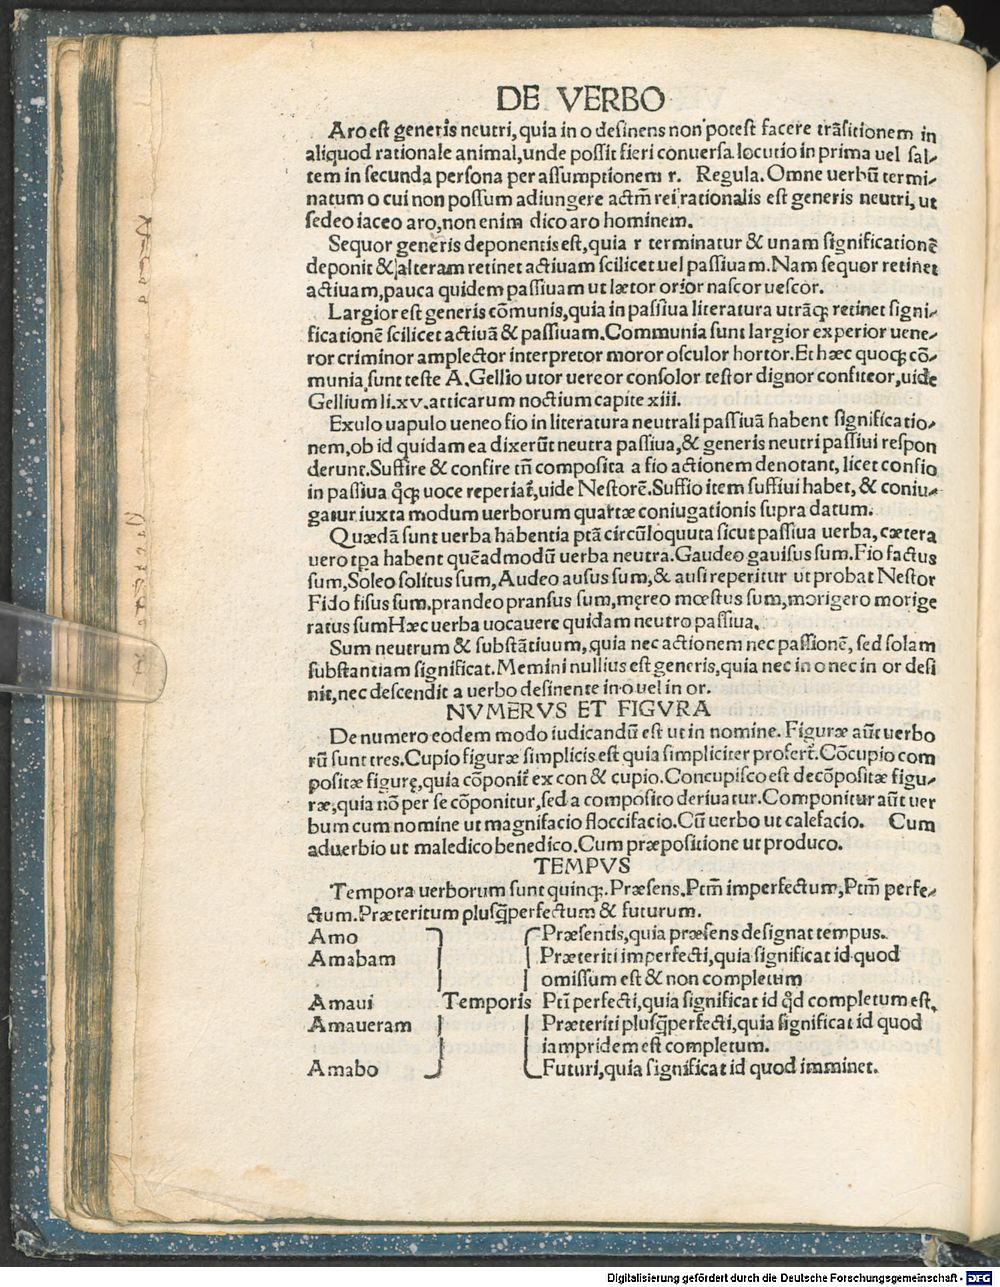 DE VERBO
Aro est generis neutri, quia in o desinens non potest facere trãsitionem in
aliquod rationale animal, unde possit fieri conuersa locutio in prima uel sal-
tem in secunda persona per assumptionem r. Regula. Omne uerbũ termi-
natum o cui non possum adiungere actm̃ rei rationalis est generis neutri, ut
sedeo iaceo aro, non enim dico aro hominem.
Sequor generis deponentis est, quia r terminatur & unam significationẽ
deponit & alteram retinet actiuam scilicet uel passiuam. Nam sequor retinet
actiuam, pauca quidem passiuam ut lætor orior nascor uescor.
Largior est generis cõmunis, quia in passiua literatura utrãq; retinet signi-
ficationẽ scilicet actiuã & passiuam. Communia sunt largior experior uene-
ror criminor amplector interpretor moror osculor hortor. Et hæc quoq; cõ-
munia sunt teste A. Gellio utor uereor consolor testor dignor confiteor, uide
Gellium li. xv. atticarum noctium capite xiii.
Exulo uapulo ueneo fio in literatura neutrali passiuã habent significatio-
nem, ob id quidam ea dixerũt neutra passiua, & generis neutri passiui respon
derunt. Suffire & confire tñ composita a fio actionem denotant, licet confio
in passiua q̊q; uoce reperiat᷑, uide Nestorẽ. Suffio item suffiui habet, & coniu-
gatur iuxta modum uerborum quartæ coniugationis supra datum.
Quædã sunt uerba habentia ptã circũloquuta sicut passiua uerba, cætera
uero tpa habent quẽadmodũ uerba neutra. Gaudeo gauisus sum. Fio factus
sum, Soleo solitus sum, Audeo ausus sum, & ausi reperitur ut probat Nestor
Fido fisus sum. prandeo pransus sum, męreo mœstus sum, morigero morige
ratus sum Hæc uerba uocauere quidam neutro passiua.
Sum neutrum & substãtiuum, quia nec actionem nec passionẽ, sed solam
substantiam significat. Memini nullius est generis, quia nec in o nec in or desi
nit, nec descendit a uerbo desinente in o uel in or.
NVMERVS ET FIGVRA
De numero eodem modo iudicandũ est ut in nomine. Figuræ aũt uerbo
rũ sunt tres. Cupio figuræ simplicis est quia simpliciter profert᷑. Cõcupio com
positæ figurę, quia cõponit᷑ ex con & cupio. Concupisco est decõpositæ figu-
ræ, quia nõ per se cõponitur, sed a composito deriuatur. Componitur aũt uer
bum cum nomine ut magnifacio floccifacio. Cũ uerbo ut calefacio. Cum
aduerbio ut maledico benedico. Cum præpositione ut produco.
TEMPVS
Tempora uerborum sunt quinq;. Præsens. Ptm̃ imperfectum, Ptm̃ perfe-
ctum. Præteritum plusq̃perfectum & futurum.
Amo Præsentis, quia præsens designat tempus.
Amabam Præteriti imperfecti, quia significat id quod
omissum est & non completum
Amaui Temporis Ptĩ perfecti, quia significat id qđ completum est.
Amaueram Præteriti plusq̃perfecti, quia significat id quod
iampridem est completum.
Amabo Futuri, quia significat id quod imminet.
Digitalisierung gefördert durch die Deutsche Forschungsgemeinschaft - DFG